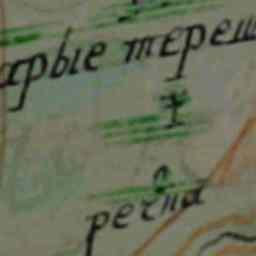 арые тереш
речка